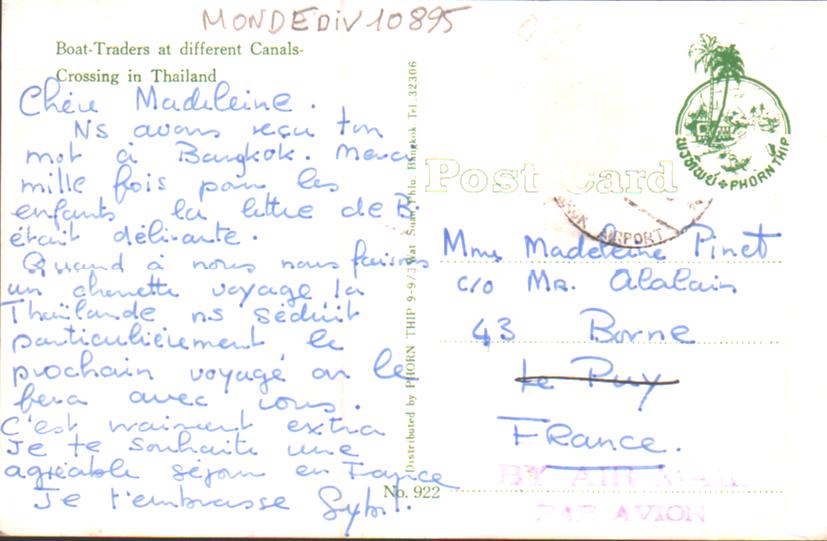 MONDEDIV10895
Boat-Traders at different Canals-
Crossing in Thailand
Chère Madeleine.
Ns avons reçu ton
mot à Bangkok. Merci
mille fois pour les
enfants la lettre de B.
était délirante.
Quand à nous nous faisons
un chouette voyage la
Thaïlande ns séduit
particulièrement le
prochain voyage on le
fera avec vous.
C'est vraiment extra
Je te souhaite une
agréable séjour en France
Je t'embrasse Sybil.
Distributed by PHORN THIP 9-9/ Wat Suan Phlu. Bangkok Tel. 32306
No. 922
Post Card
พรทิพย์ PHORN THIP
AIRPORT
Mme Madeleine Pinet
c/o Mr. Alalain
43 Borne
Le Puy
France.
BY AIR MAIL
PAR AVION